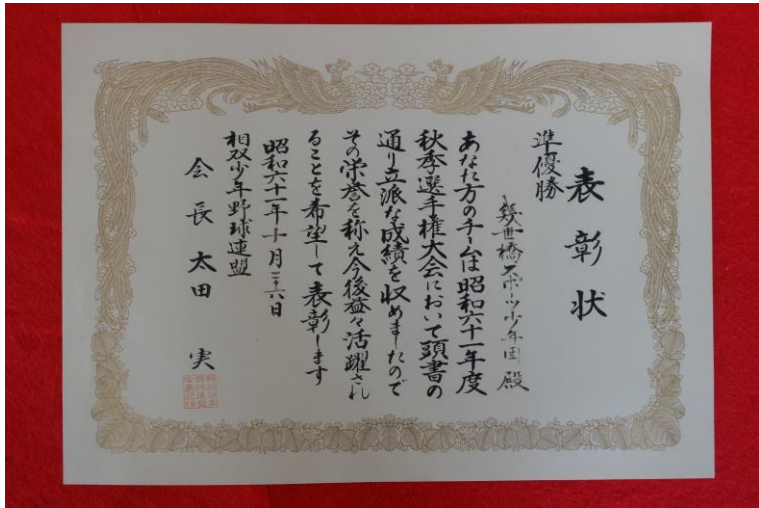 表彰状
準優勝
幾世橋スポーツ少年団 殿
あなた方のチームは昭和六十一年度
秋季選手権大会において頭書の
通り立派な成績を収めましたので
その栄誉を称え今後益々活躍され
ることを希望して表彰します
昭和六十一年十月二十六日
相双少年野球連盟
会長 太田 実